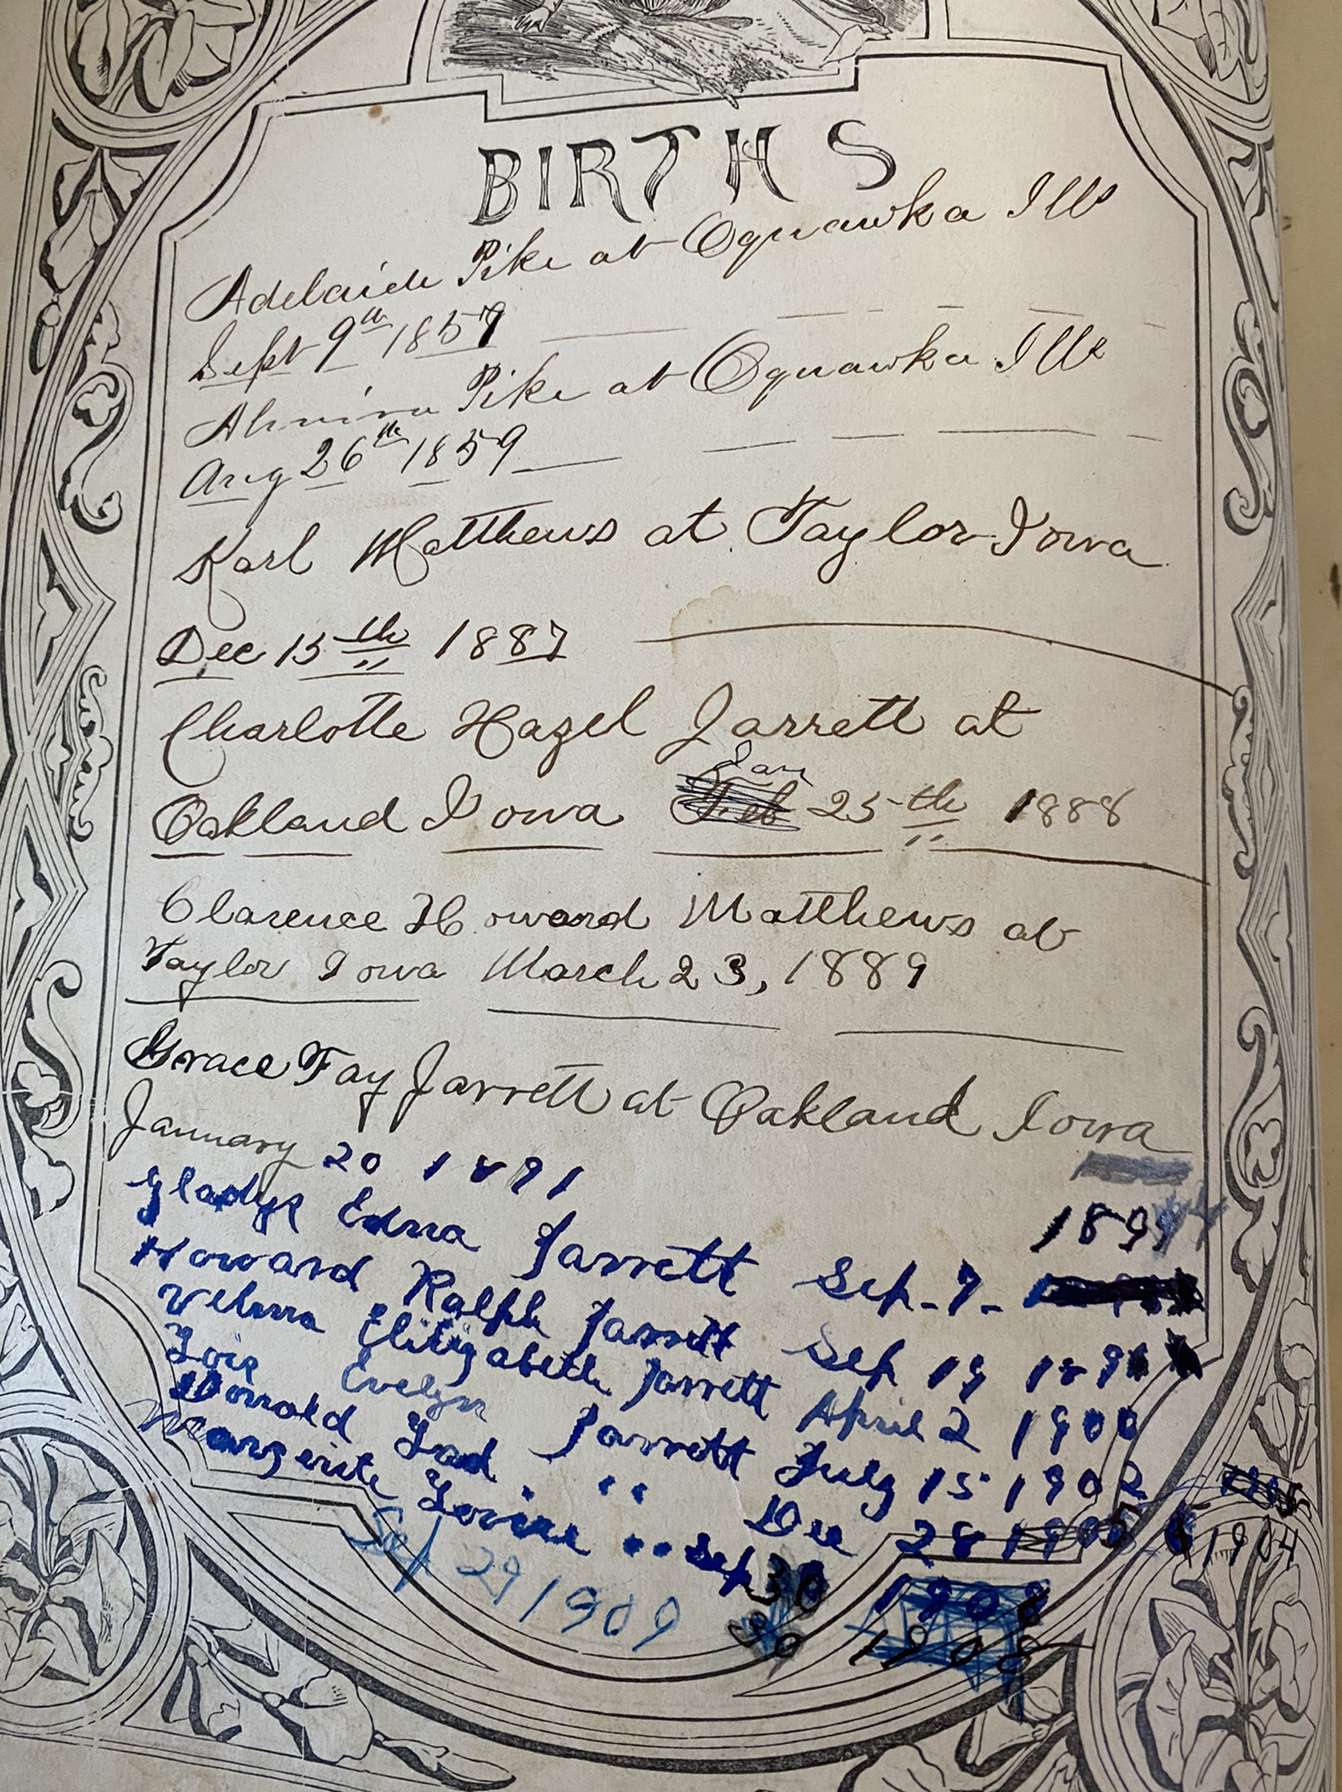 BIRTHS
Adelaide Pike at Oquawka Ills
Sept 9th 1857
Almira Pike at Oquawka Ills
Aug 26th 1859
Karl Matthews at Taylor Iowa
Dec 15th 1887
Charlotte Hazel Jarrett at
Jan
Oakland Iowa Feb 25th 1888
Clarence Howard Matthews at
Taylor Iowa March 23, 1889
Grace Fay Jarrett at Oakland Iowa
January 20 1891
Gladys Edna Jarrett Sep. 7. 1894
Howard Ralph Jarrett Sep 19 189
Velma Elitizabeth Jarrett April 2 1900
Lois Evelyn Jarrett July 15 1902
Donald Lad " Dec 28 1904
Margerite " Sep 30 1908
Sep 29 1909 30 1908